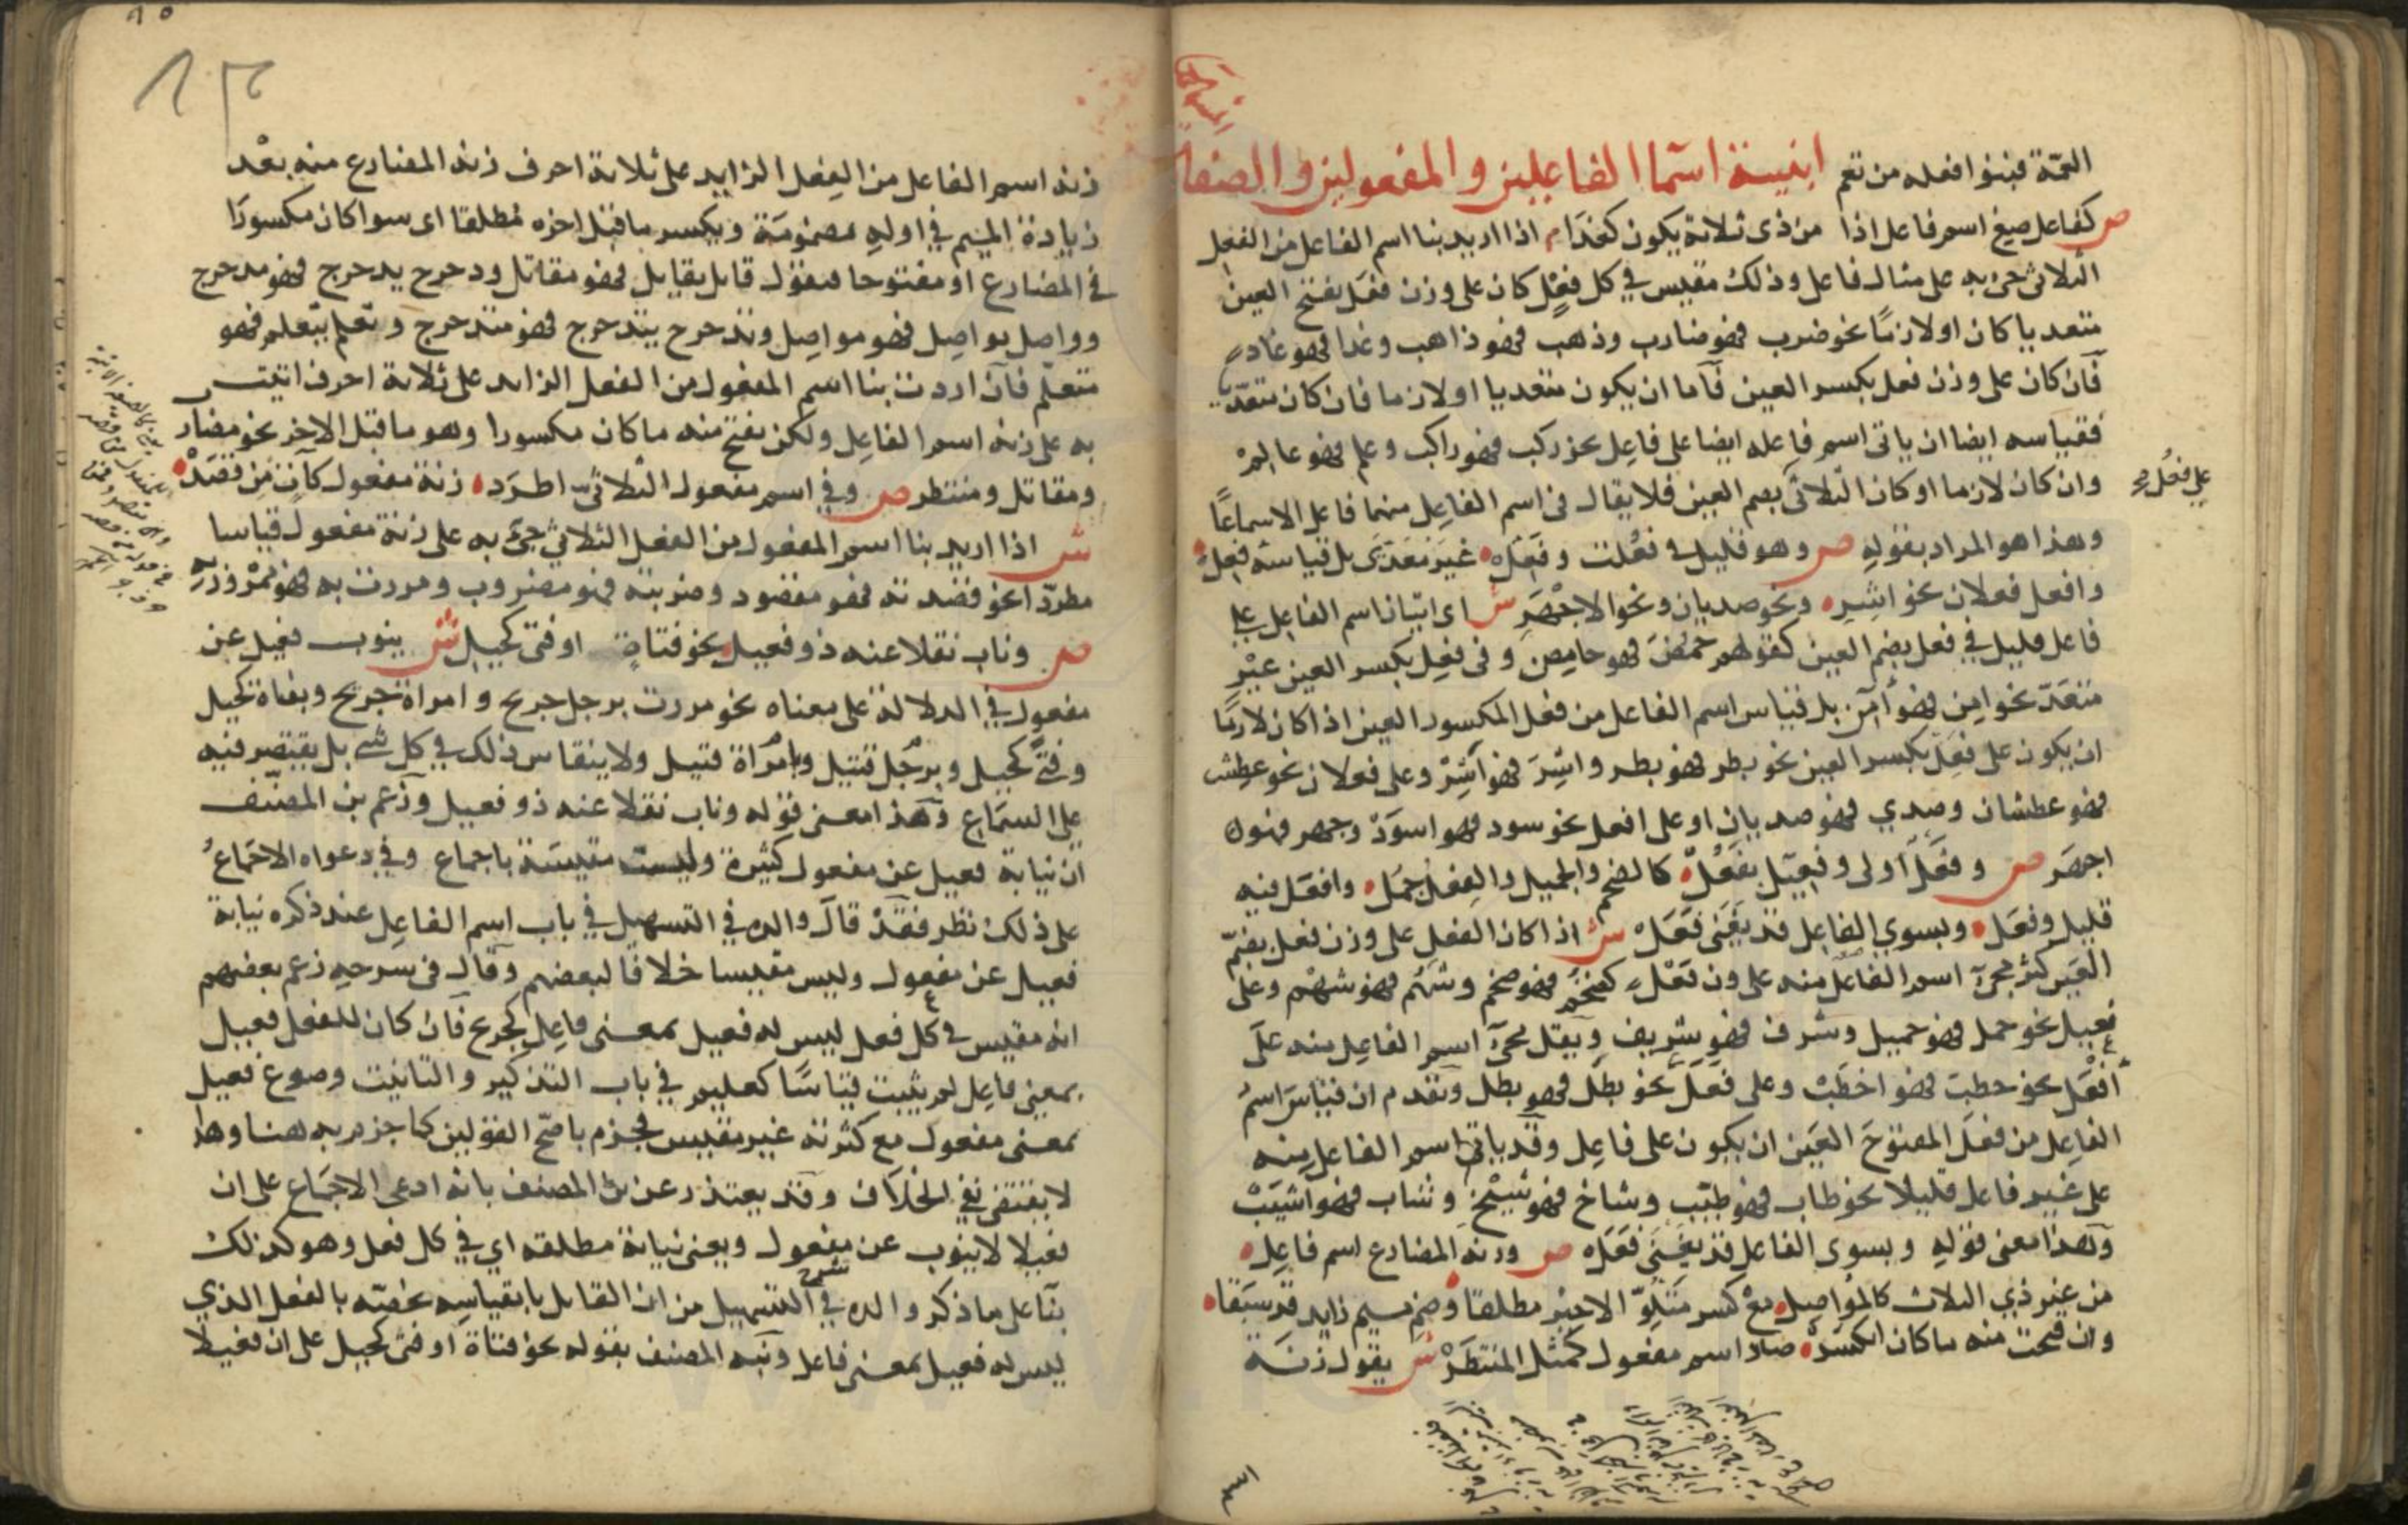 العمّة فبنوا افعله من تعم ابنية اسما الفاعلين والمفعولين والصفات
ص كفاعل صغ اسم فاعل اذا من ذى ثلاثة يكون كغذا م اذا اريد بنا اسم الفاعل من الفعل
الثلاثى جئ به على مثال فاعل وذلك مقيس في كل فعل كان على وزن فعل بفتح العين
متعديا كان او لازما نحو ضرب فهو ضارب وذهب فهو ذاهب وغدا فهو غاد
فان كان على وزن فعل بكسر العين فاما ان يكون متعديا او لازما فان كان متعديا
فقياسه ايضا ان ياتى اسم فاعله ايضا على فاعل نحو ركب فهو راكب وعلم فهو عالم
وان كان لازما او كان الثلاثى بضم العين فلا يقال فى اسم الفاعل منهما فاعل الا سماعًا
على فعُل صح
وهذا هو المراد بقوله ص وهو قليل فى فعُلت وفعِل غير معدّى بل قياسه فعِل
وافعل فعلان نحو اشِرِ ونحو صديان ونحو الاجهَرِ ش اى اتيان اسم الفاعل على
فاعل قليل في فعل بضم العين كقولهم حمُض فهو حامض وفى فعِل بكسر العين غير
متعَدّ نحو امِن فهو آمن بل قياس اسم الفاعل من فعل المكسور العين اذا كان لازمًا
ان يكون على فعِل بكسر العين نحو بطر فهو بطر واشِرَ فهو اشِرٌ وعلى فعلان نحو عطِش
فهو عطشان وصدي فهو صديان او على افعل نحو سود فهو اسوَدْ وجهر فهو
اجهَر ص وفعْل اولى وفعيل بفعُل كالضخم والجميل والفعل جمُل وافعَل فيه
قليل وفعَل وبسوي الفاعل قد يغنَى فعَل ش اذا كان الفعل على وزن فعل بضمّ
العين كثر مجئ اسم الفاعل منه على وزن فعْل كضخُم فهو ضخم وشهُم فهو شهْم وعلى
فعيل نحو جمل فهو جميل وشرف فهو شريف ويقل مجئ اسم الفاعل منه على
افعَل نحو خطب فهو اخطَبْ وعلى فعَل نحو بطل فهو بطل وتقدم ان قياسَ اسم
الفاعل من فعَل المفتوحَ العين ان يكون على فاعل وقد ياتى اسم الفاعل منه
على غير فاعل قليلا نحو طاب فهو طيّب وشاخ فهو شيْخ وشاب فهو اشيَبْ
وهذا معنى قوله وبسوى الفاعل قد يغنَى فعَل ص وزنه المضارع اسم فاعل
من غير ذي الثلاث كالمواصل مع كسر متلوّ الاخير مطلقا وضم ميم زايد قد سبَقا
وان فتحت منه ما كان انكسَرْ صار اسم مفعول كمثل المنتظَرْ ش يقول زنه
زنه اسم الفاعل من الفعل الزايد على ثلاثة احرف زنه المضارع منه بعْد
زيادة الميم في اوله مضمومة ويكسر ما قبل اخره مُطلقا اى سوا كان مكسورًا
في المضارع او مفتوحا فتقول قاتل يقاتل فهو مقاتل ودحرج يدحرج فهو مدحرج
وواصل يواصِل فهو مواصِل وتدحرج يتدحرج فهو متدحرج وتعلم يتعلم فهو
متعلّم فان اردت بنا اسم المفعول من الفعل الزايد على ثلاثة احرف اتيت
به على زنه اسم الفاعل ولكن تفتح منه ما كان مكسورا وهو ما قبل الاخر نحو مضارب
ومقاتل ومنتظر ص وفى اسم مفعول الثلاثىّ اطرَد زنة مفعول كآت من قصَدْ
ش اذا اريد بنا اسم المفعول من الفعل الثلاثي جئ به على زنة مفعول قياسا
مطردّا نحو قصدته فهو مقصود وضربته فهو مضروب ومررت به فهو ممرور به
ص وناب نقلا عنه ذو فعيل نحو فتاة او فتى كحيل ش ينوب فعيل عن
مفعول في الدلالة على معناه نحو مررت برجل جريح وامراة جريح وبفتاة كحيل
وفتًى كحيل وبرجُل قتيل وبامراة قتيل ولا ينقاس ذلك في كل شى بل يقتصر فيه
على السماع وهذا معنى قوله وناب نقلا عنه ذو فعيل وزعم بن المصنّف
ان نيابة فعيل عن مفعول كثيرة وليست مقيسة باجماع وفي دعواه الاجماعُ
على ذلك نظر فقد قال والده في التسهيل في باب اسم الفاعل عند ذكره نيابة
فعيل عن مفعول وليس مقيسا خلافا لبعضهم وقال فى شرحه زعم بعضهم
انه مقيس في كل فعل ليس له فعيل بمعنى فاعل كجريح فان كان للفعل فعيل
بمعنى فاعل لم يثبت قياسًا كعليم في باب التذكير والتانيث وصوغ فعيل
بمعنى مفعول مع كثرته غير مقيس فجزم باصح القولين كما جزم به هنا وهذا
لا يقتضى نفي الخلاف وقد يعتذر عن بن المصنف بانه ادعى الاجماع على ان
فعيلا لا ينوب عن مفعول ويعنى نيابة مطلقه اي في كل فعل وهو كذلك
بنا على ما ذكر والده في شرح التسهيل من ان القايل بانقياسه يخصّه بالفعل الذي
ليس له فعيل بمعنى فاعل ونبه المصنف بقوله نحو فتاة او فتى كحيل على ان فعيلا